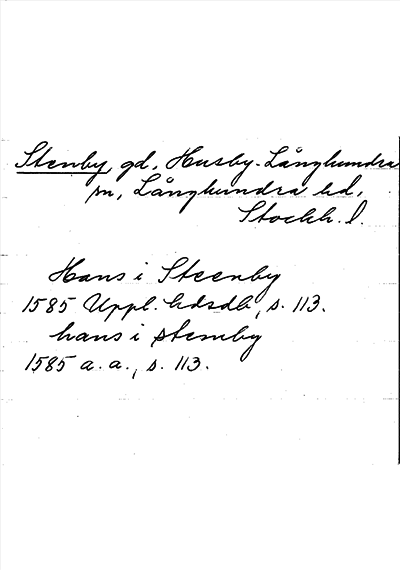 Stenby, gd, Husby-Långhundra
sn, Långhundra hd,
Stockh. l.
Hans i Steenby
1585 Uppl. hdsdb, s. 113.
hans i stemby
1585 a. a., s. 113.